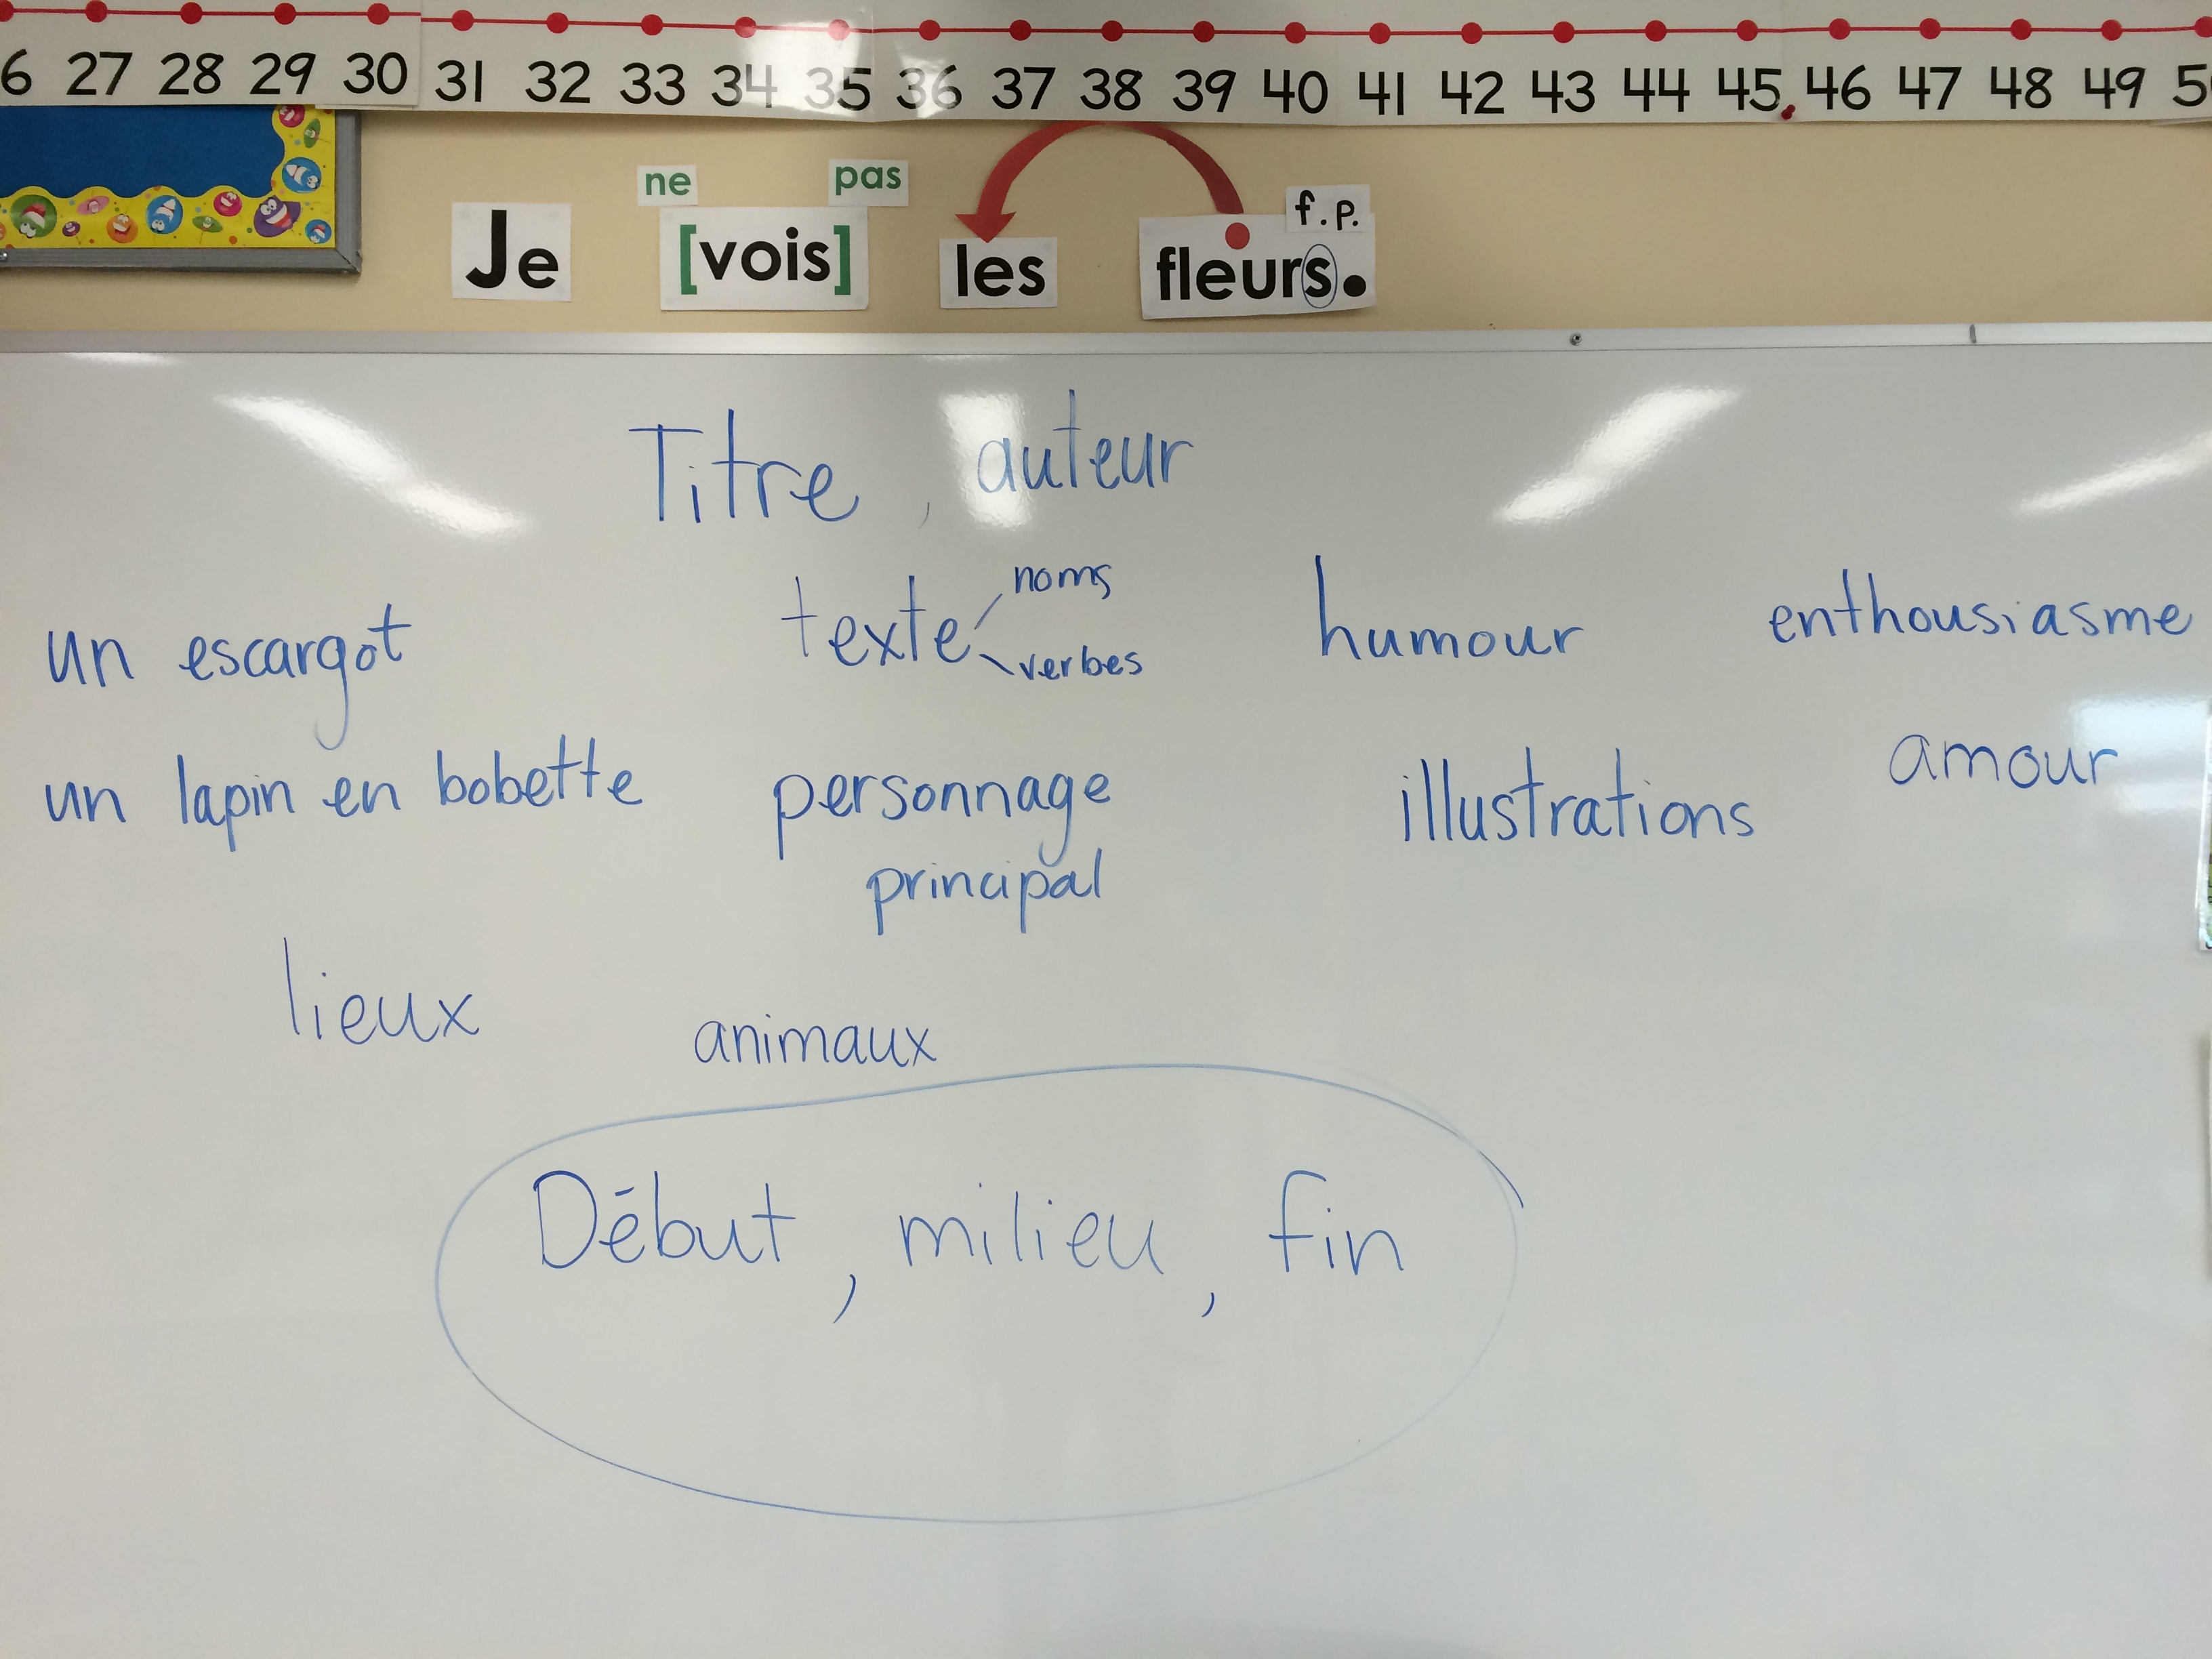 6 27 28 29 30 31 32 33 34 35 36 37 38 39 40 41 42 43 44 45 46 47 48 49
ne pas f.p.
Je [vois] les fleurs.
Titre, auteur
noms
un escargot texte humour enthousiasme
verbes
un lapin en bobette personnage illustrations amour
principal
lieux animaux
Début, milieu, fin